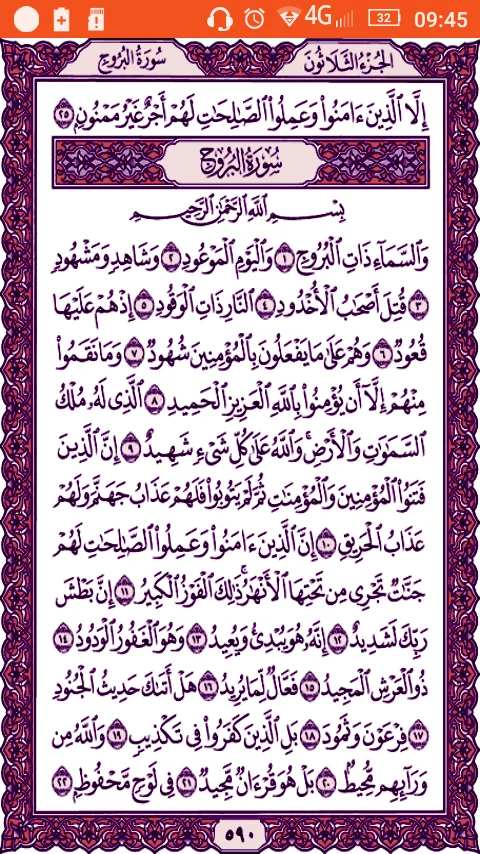 4G 32 09:45
الجزء الثلاثون سورة البروج
إِلَّا ٱلَّذِينَ ءَامَنُوا۟ وَعَمِلُوا۟ ٱلصَّٰلِحَٰتِ لَهُمْ أَجْرٌ غَيْرُ مَمْنُونٍۭ ٢٥
سُورَةُ البُرُوجِ
بِسْمِ ٱللَّهِ ٱلرَّحْمَٰنِ ٱلرَّحِيمِ
وَٱلسَّمَآءِ ذَاتِ ٱلْبُرُوجِ ١ وَٱلْيَوْمِ ٱلْمَوْعُودِ ٢ وَشَاهِدٍ وَمَشْهُودٍ
٣ قُتِلَ أَصْحَٰبُ ٱلْأُخْدُودِ ٤ ٱلنَّارِ ذَاتِ ٱلْوَقُودِ ٥ إِذْ هُمْ عَلَيْهَا
قُعُودٌ ٦ وَهُمْ عَلَىٰ مَا يَفْعَلُونَ بِٱلْمُؤْمِنِينَ شُهُودٌ ٧ وَمَا نَقَمُوا۟
مِنْهُمْ إِلَّآ أَن يُؤْمِنُوا۟ بِٱللَّهِ ٱلْعَزِيزِ ٱلْحَمِيدِ ٨ ٱلَّذِى لَهُۥ مُلْكُ
ٱلسَّمَٰوَٰتِ وَٱلْأَرْضِ ۚ وَٱللَّهُ عَلَىٰ كُلِّ شَىْءٍ شَهِيدٌ ٩ إِنَّ ٱلَّذِينَ
فَتَنُوا۟ ٱلْمُؤْمِنِينَ وَٱلْمُؤْمِنَٰتِ ثُمَّ لَمْ يَتُوبُوا۟ فَلَهُمْ عَذَابُ جَهَنَّمَ وَلَهُمْ
عَذَابُ ٱلْحَرِيقِ ١٠ إِنَّ ٱلَّذِينَ ءَامَنُوا۟ وَعَمِلُوا۟ ٱلصَّٰلِحَٰتِ لَهُمْ
جَنَّٰتٌ تَجْرِى مِن تَحْتِهَا ٱلْأَنْهَٰرُ ۚ ذَٰلِكَ ٱلْفَوْزُ ٱلْكَبِيرُ ١١ إِنَّ بَطْشَ
رَبِّكَ لَشَدِيدٌ ١٢ إِنَّهُۥ هُوَ يُبْدِئُ وَيُعِيدُ ١٣ وَهُوَ ٱلْغَفُورُ ٱلْوَدُودُ ١٤
ذُو ٱلْعَرْشِ ٱلْمَجِيدُ ١٥ فَعَّالٌ لِّمَا يُرِيدُ ١٦ هَلْ أَتَىٰكَ حَدِيثُ ٱلْجُنُودِ
١٧ فِرْعَوْنَ وَثَمُودَ ١٨ بَلِ ٱلَّذِينَ كَفَرُوا۟ فِى تَكْذِيبٍ ١٩ وَٱللَّهُ مِن
وَرَآئِهِم مُّحِيطٌۢ ٢٠ بَلْ هُوَ قُرْءَانٌ مَّجِيدٌ ٢١ فِى لَوْحٍ مَّحْفُوظٍۭ ٢٢
٥٩٠